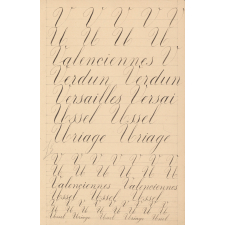 V V V V V
U U U U U
Valenciennes V
Verdun Verdun
Versailles Versai
Ussel Ussel
Uriage Uriage
V V V V V V V V
U U U U U U U U
Valenciennes Valencien
Ussel Ussel Ussel
U U U U U U U U
Ussel Uriage Ussel Uriage Ussel